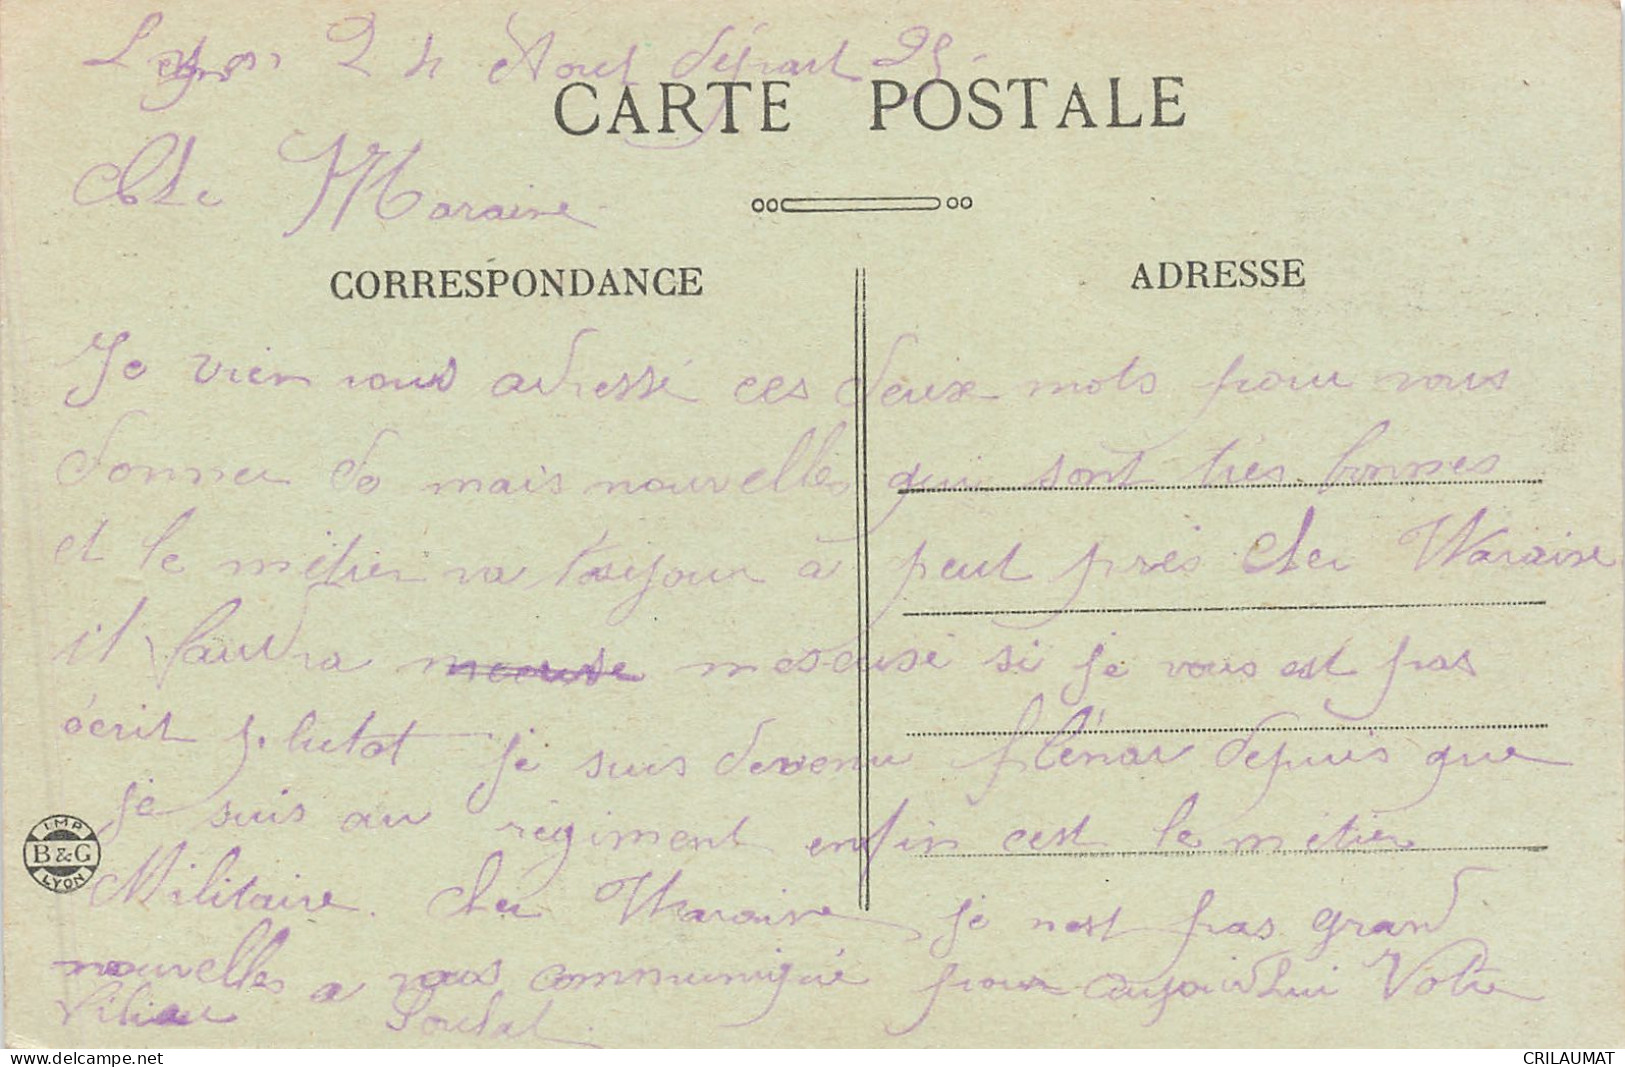 Lyon 24 Aout départ 25
CARTE POSTALE
Che Maraine
CORRESPONDANCE
ADRESSE
Je vien vous adressé ces deux mots pour vous
donner de mais nouvelles qui sont très bonnes
et le métier va toujour à peut près Cher Maraine
il faudra mescusé si je vous est pas
écrit plutot je suis devenu flénar depuis que
je suis au régiment enfin cest le métier
Militaire. Cher Maraine je nest pas grand
nouvelles a vous communiqué pour aujourdhui Votre
Soudat
IMP
B&G
LYON
delcampe.net
CRILAUMAT